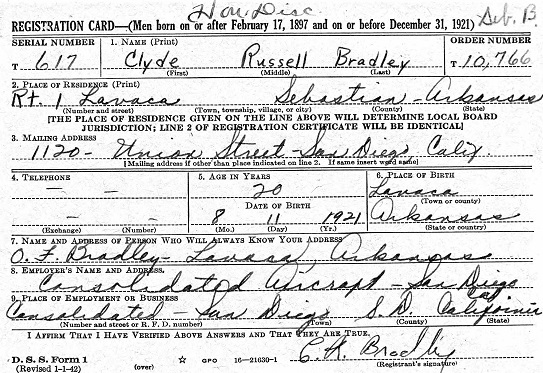 Hon. Disc.
REGISTRATION CARD—(Men born on or after February 17, 1897 and on or before December 31, 1921) Seb. B.
SERIAL NUMBER 1. NAME (Print) ORDER NUMBER
T 617 Clyde Russell Bradley T 10,766
(First) (Middle) (Last)
2. PLACE OF RESIDENCE (Print)
Rt. 1 Lavaca Sebastian - Arkansas
(Number and street) (Town, township, village, or city) (County) (State)
[THE PLACE OF RESIDENCE GIVEN ON THE LINE ABOVE WILL DETERMINE LOCAL BOARD
JURISDICTION; LINE 2 OF REGISTRATION CERTIFICATE WILL BE IDENTICAL]
3. MAILING ADDRESS
1120 - Union Street - San Diego Calif.
[Mailing address if other than place indicated on line 2. If same insert word same]
4. TELEPHONE 5. AGE IN YEARS 6. PLACE OF BIRTH
— — 20 Lavaca
DATE OF BIRTH (Town or county)
— — 8 11 1921 Arkansas
(Exchange) (Number) (Mo.) (Day) (Yr.) (State or country)
7. NAME AND ADDRESS OF PERSON WHO WILL ALWAYS KNOW YOUR ADDRESS
O. F. Bradley - Lavaca, Arkansas
8. EMPLOYER'S NAME AND ADDRESS
Consolidated Aircraft - San Diego
Cal
9. PLACE OF EMPLOYMENT OR BUSINESS
Consolidated - San Diego S.D. California
(Number and street or R. F. D. number) (Town) (County) (State)
I AFFIRM THAT I HAVE VERIFIED ABOVE ANSWERS AND THAT THEY ARE TRUE.
D. S. S. Form 1 C. R. Bradley
(Revised 1-1-42) (over) ☆ GPO 16—21630-1 (Registrant's signature)